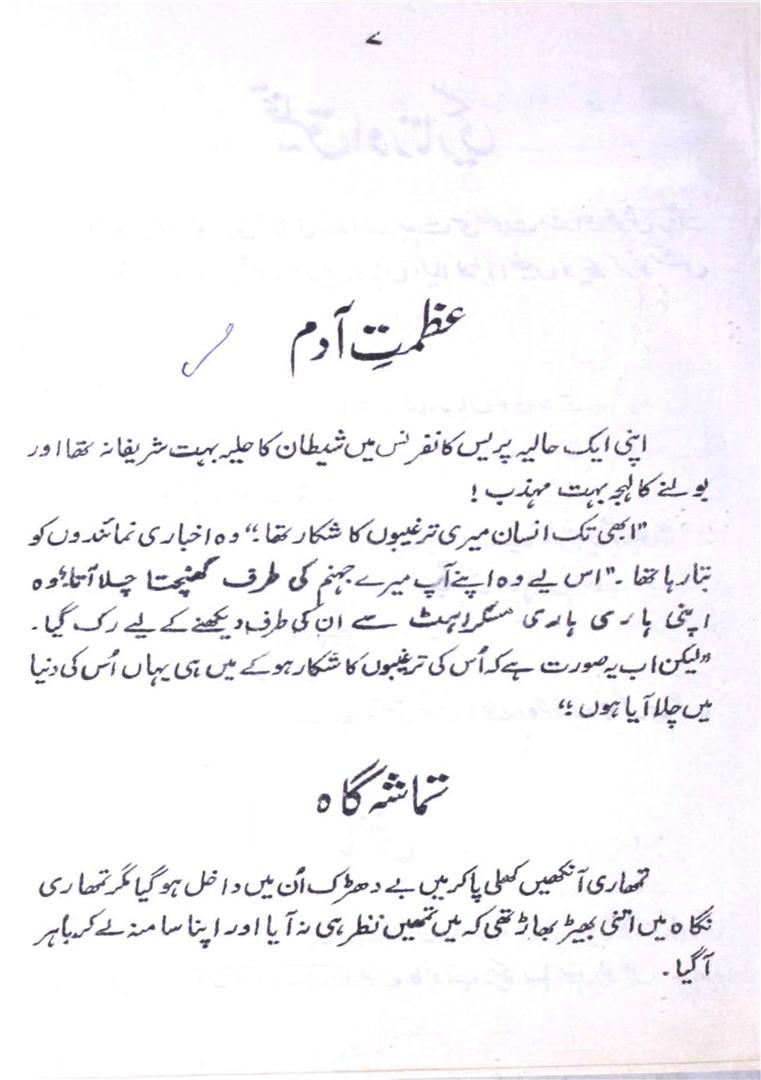 ۷
عظمتِ آدم
اپنی ایک حالیہ پریس کانفرنس میں شیطان کا حلیہ بہت شریفانہ تھا اور
بولنے کا لہجہ بہت مہذب !
”ابھی تک انسان میری ترغیبوں کا شکار تھا۔“ وہ اخباری نمائندوں کو
بتا رہا تھا۔ ”اس لیے وہ اپنے آپ میرے جہنم کی طرف کھنچتا چلا آتا۔“ وہ
اپنی ہاری ہاری مسکراہٹ سے ان کی طرف دیکھنے کے لیے رک گیا۔
”لیکن اب یہ صورت ہے کہ اُس کی ترغیبوں کا شکار ہو کے میں ہی یہاں اُس کی دنیا
میں چلا آیا ہوں !“
تماشہ گاہ
تمھاری آنکھیں کھلی پا کر میں بے دھڑک اُن میں داخل ہو گیا مگر تمھاری
نگاہ میں اتنی بھیڑ بھاڑ تھی کہ میں تمھیں نظر ہی نہ آیا اور اپنا سا منہ لے کر باہر
آ گیا۔